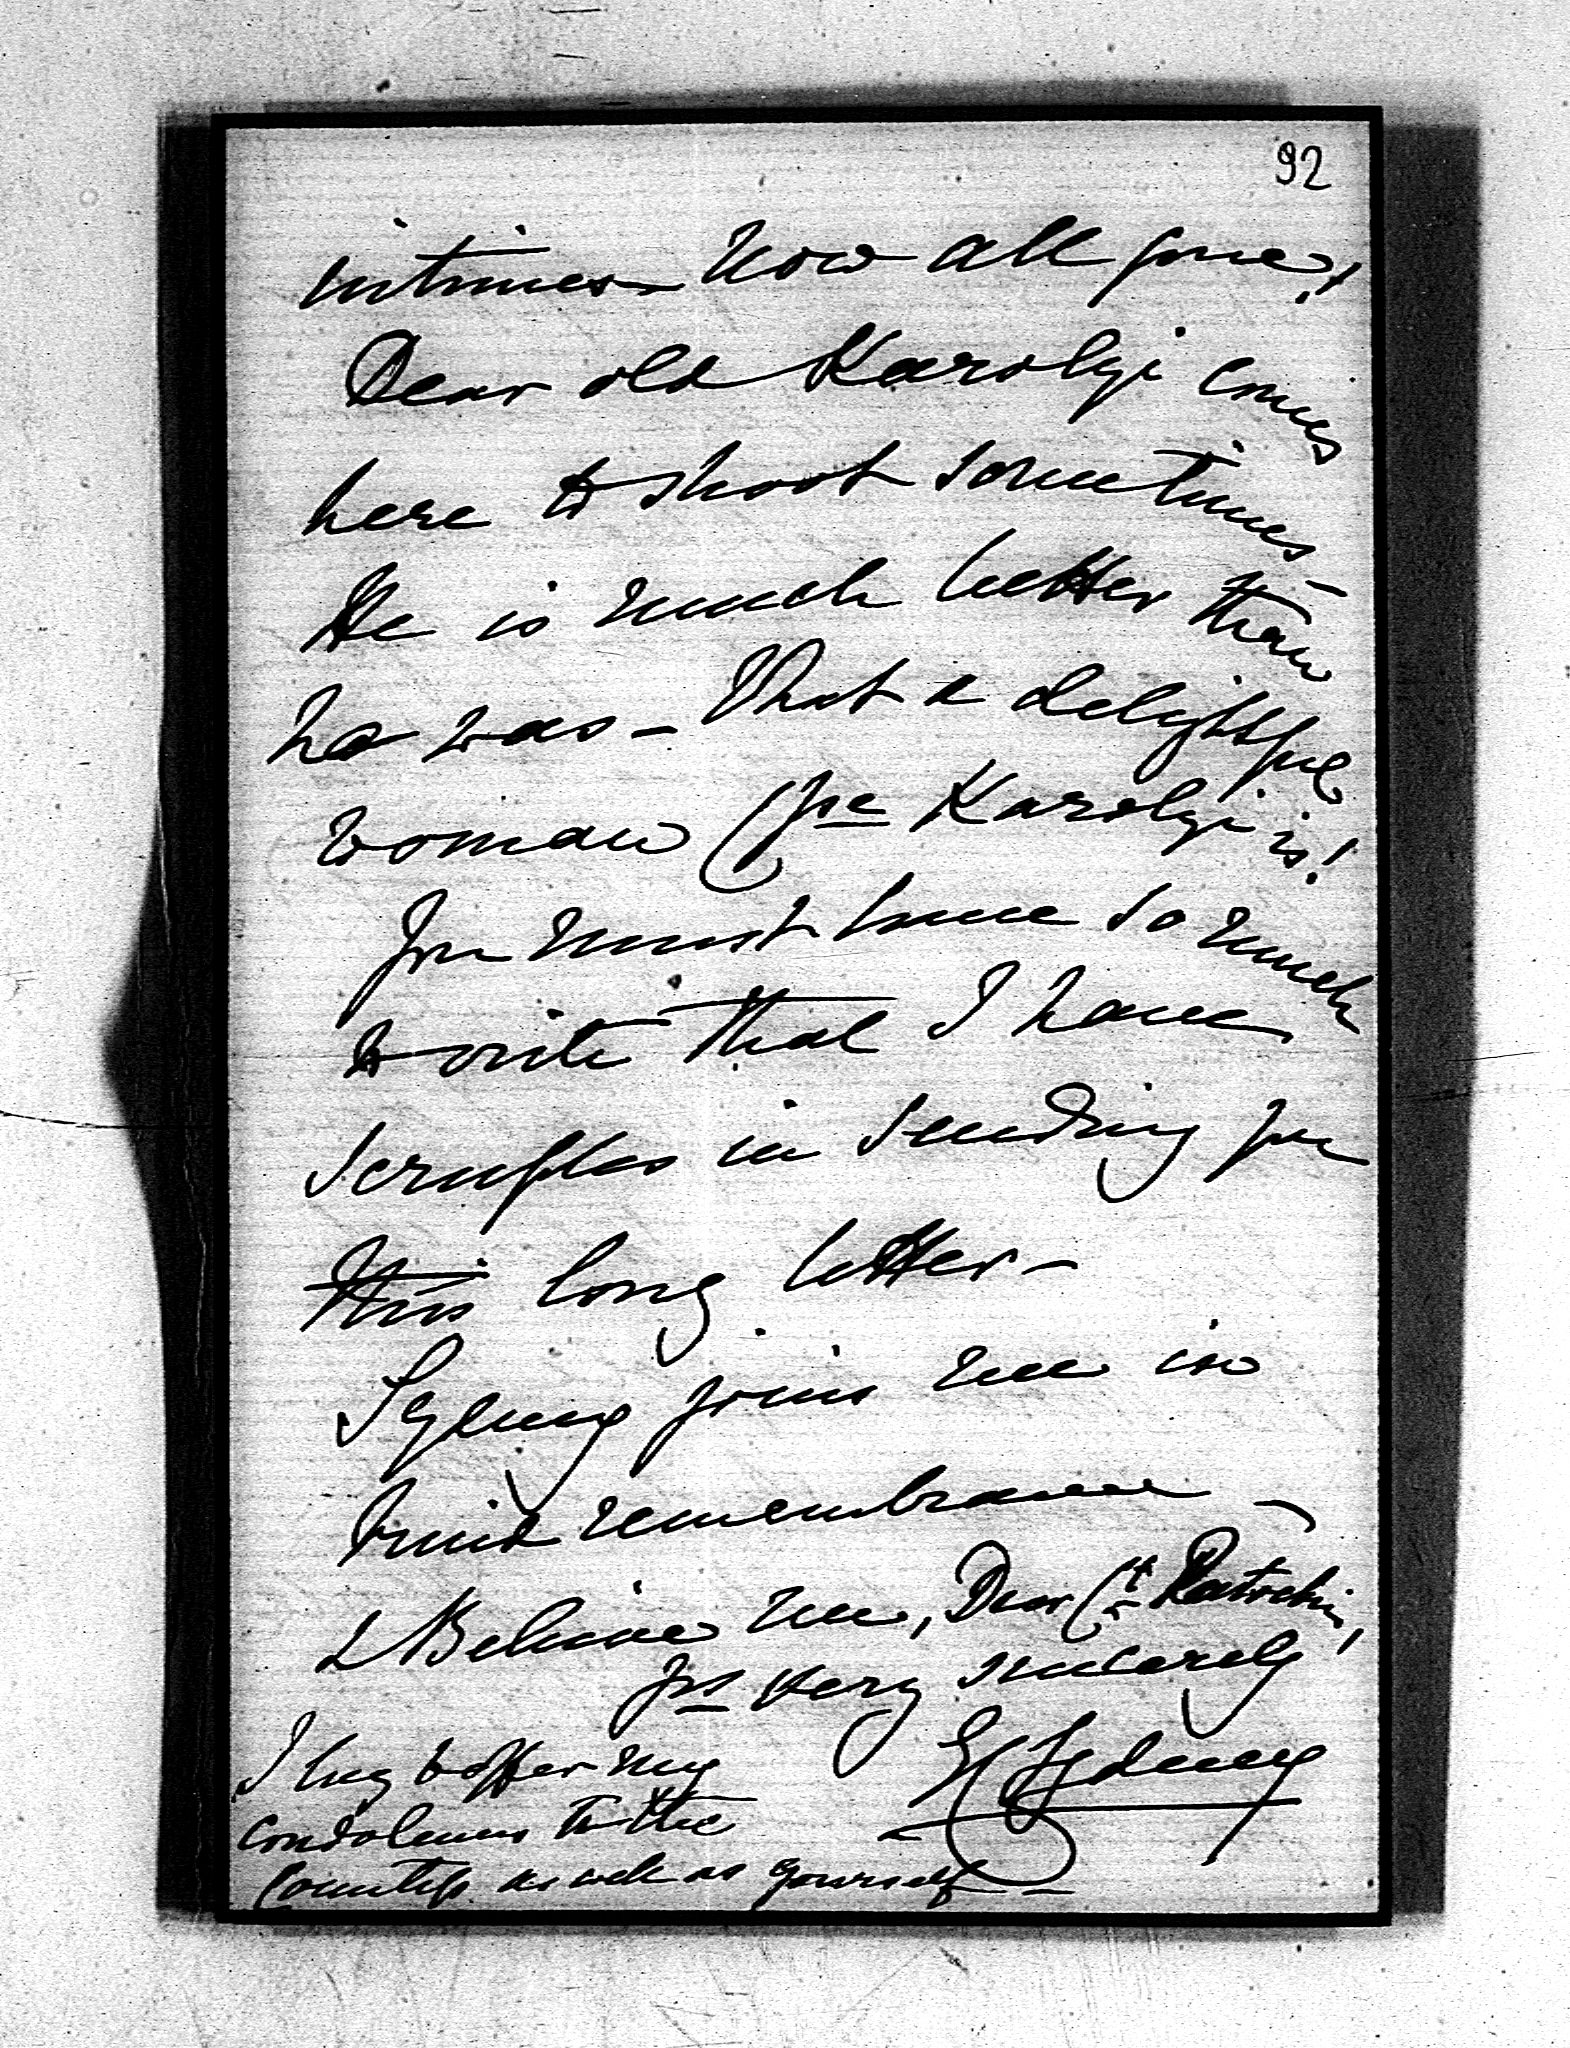 92
intimes – Now all gone!
Dear old Karolyi comes
here to shoot sometimes –
He is much better than
he was – What a delightful
woman Css Karolyi is!
You must have so much
to write that I have
scruples in sending you
this long letter –
Sydney joins me in
kind remembrance –
& Believe me, Dear Ct
Yrs very sincerely
Sydney
I beg to offer my
condolences to the
Countess as well as yourself –